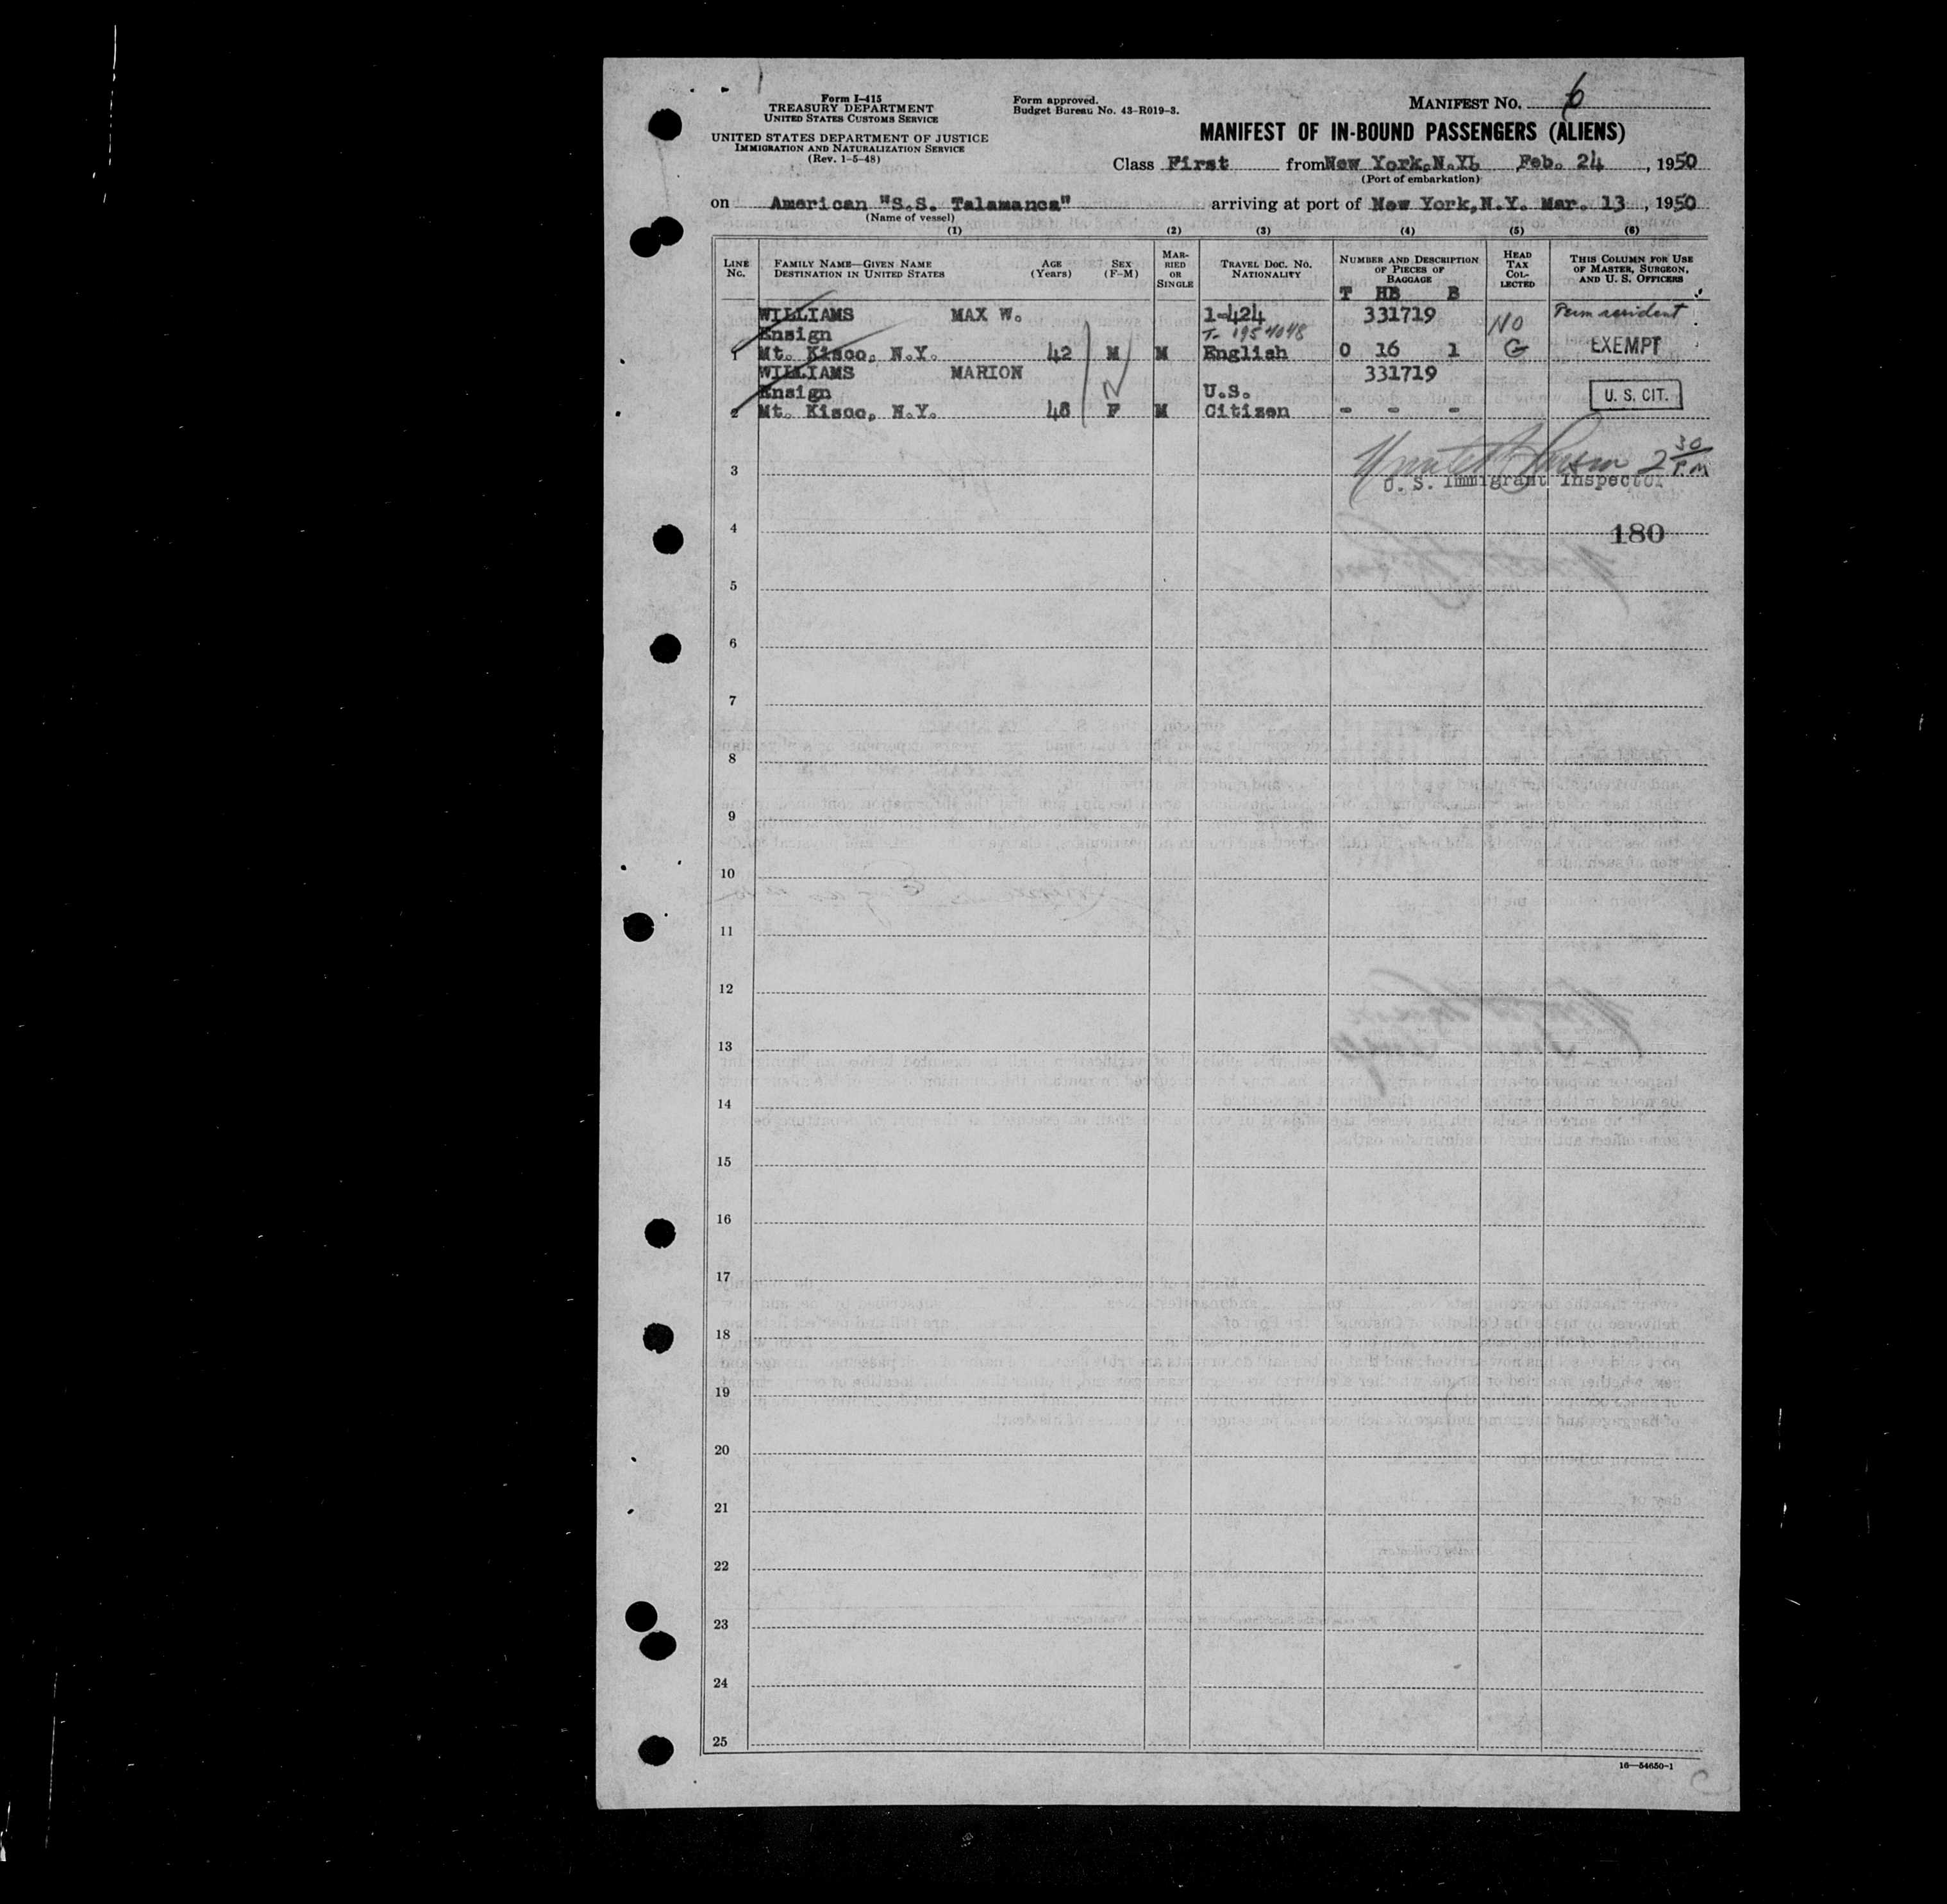 Form I-415
TREASURY DEPARTMENT
UNITED STATES CUSTOMS SERVICE
UNITED STATES DEPARTMENT OF JUSTICE
IMMIGRATION AND NATURALIZATION SERVICE
(Rev. 1-5-48)
Form approved.
Budget Bureau No. 43-R019-3.
MANIFEST NO. 6
MANIFEST OF IN-BOUND PASSENGERS (ALIENS)
Class First from New York, N.Y. Feb. 24, 1950
(Port of embarkation)
on American "S.S. Talamanca" arriving at port of New York, N.Y. Mar. 13, 1950
(Name of vessel)
(1) (2) (3) (4) (5) (6)
LINE NO.
FAMILY NAME—GIVEN NAME
DESTINATION IN UNITED STATES
AGE
(Years)
SEX
(F-M)
MARRIED OR SINGLE
TRAVEL DOC. NO.
NATIONALITY
NUMBER AND DESCRIPTION
OF PIECES OF
BAGGAGE
T HB B
HEAD TAX COLLECTED
THIS COLUMN FOR USE
OF MASTER, SURGEON,
AND U. S. OFFICERS
WILLIAMS MAX W. 1-424 331719 Perm resident
Ensign T-1954048 NO
1 Mt. Kisco, N.Y. 42 M M English 0 16 1 G EXEMPT
WILLIAMS MARION 331719
Ensign U.S. U. S. CIT.
2 Mt. Kisco, N.Y. 48 F M Citizen - - -
2 30 P.M
3 U. S. Immigrant Inspector
4 180
5
6
7
8
9
10
11
12
13
14
15
16
17
18
19
20
21
22
23
24
25
16—54650-1